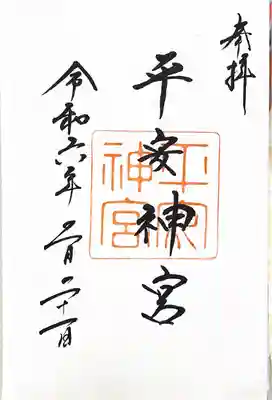 奉拝
平安神宮
平安
神宮
令和六年 二月 二十一日